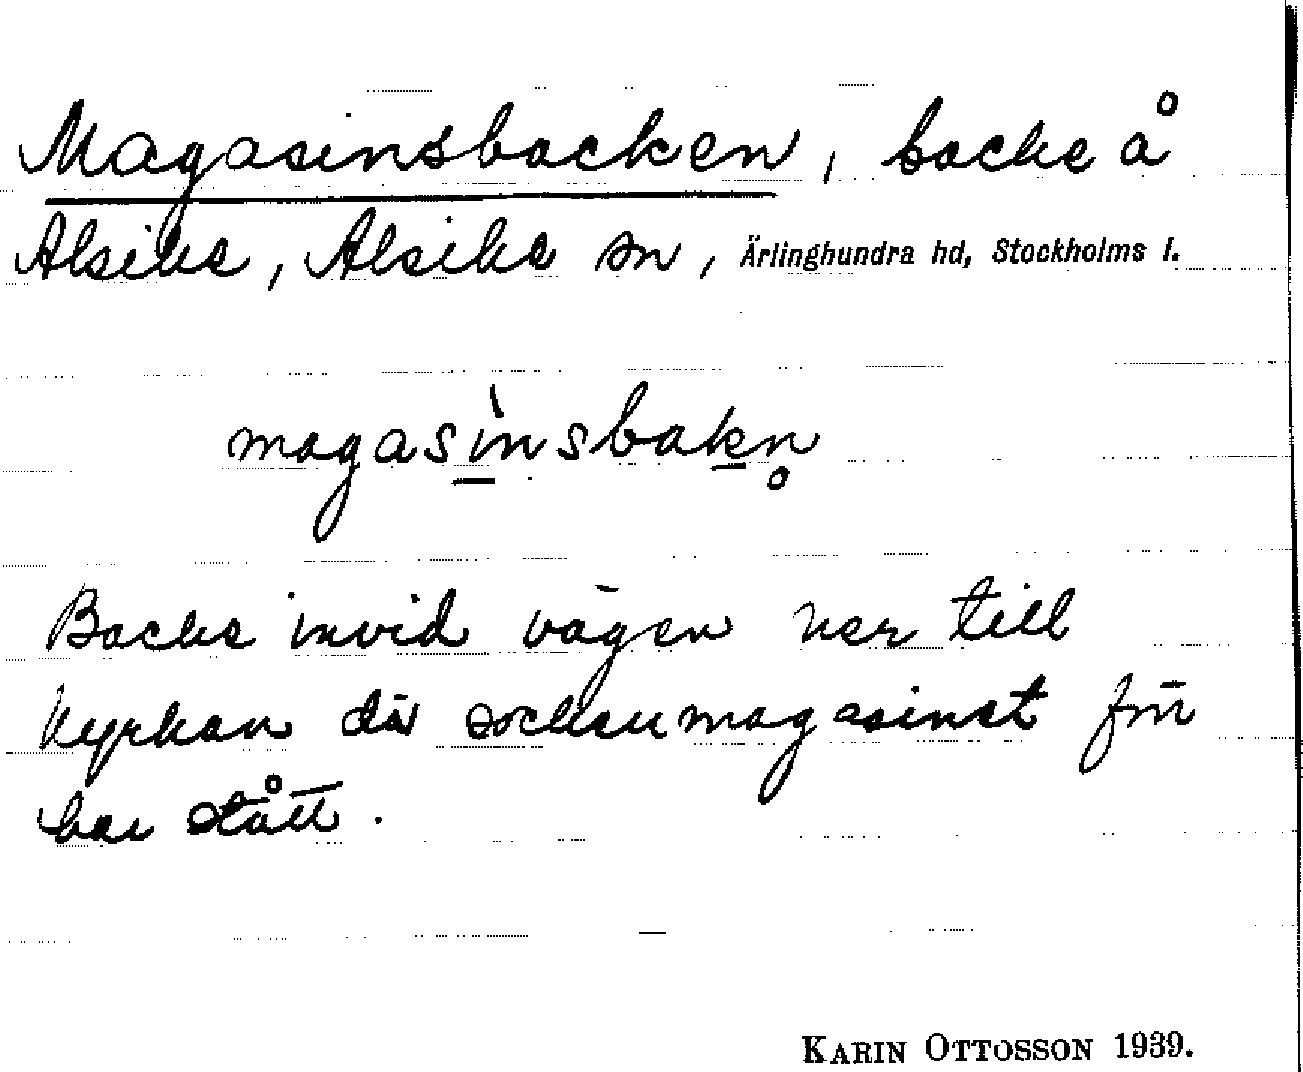 Magasinsbacken, backe å
Alsike, Alsike sn, Ärlinghundra hd, Stockholms l.
magasìnsbakn̥
Backe invid vägen ner till
kyrkan där sockenmagasinet förr
har stått.
KARIN OTTOSSON 1939.